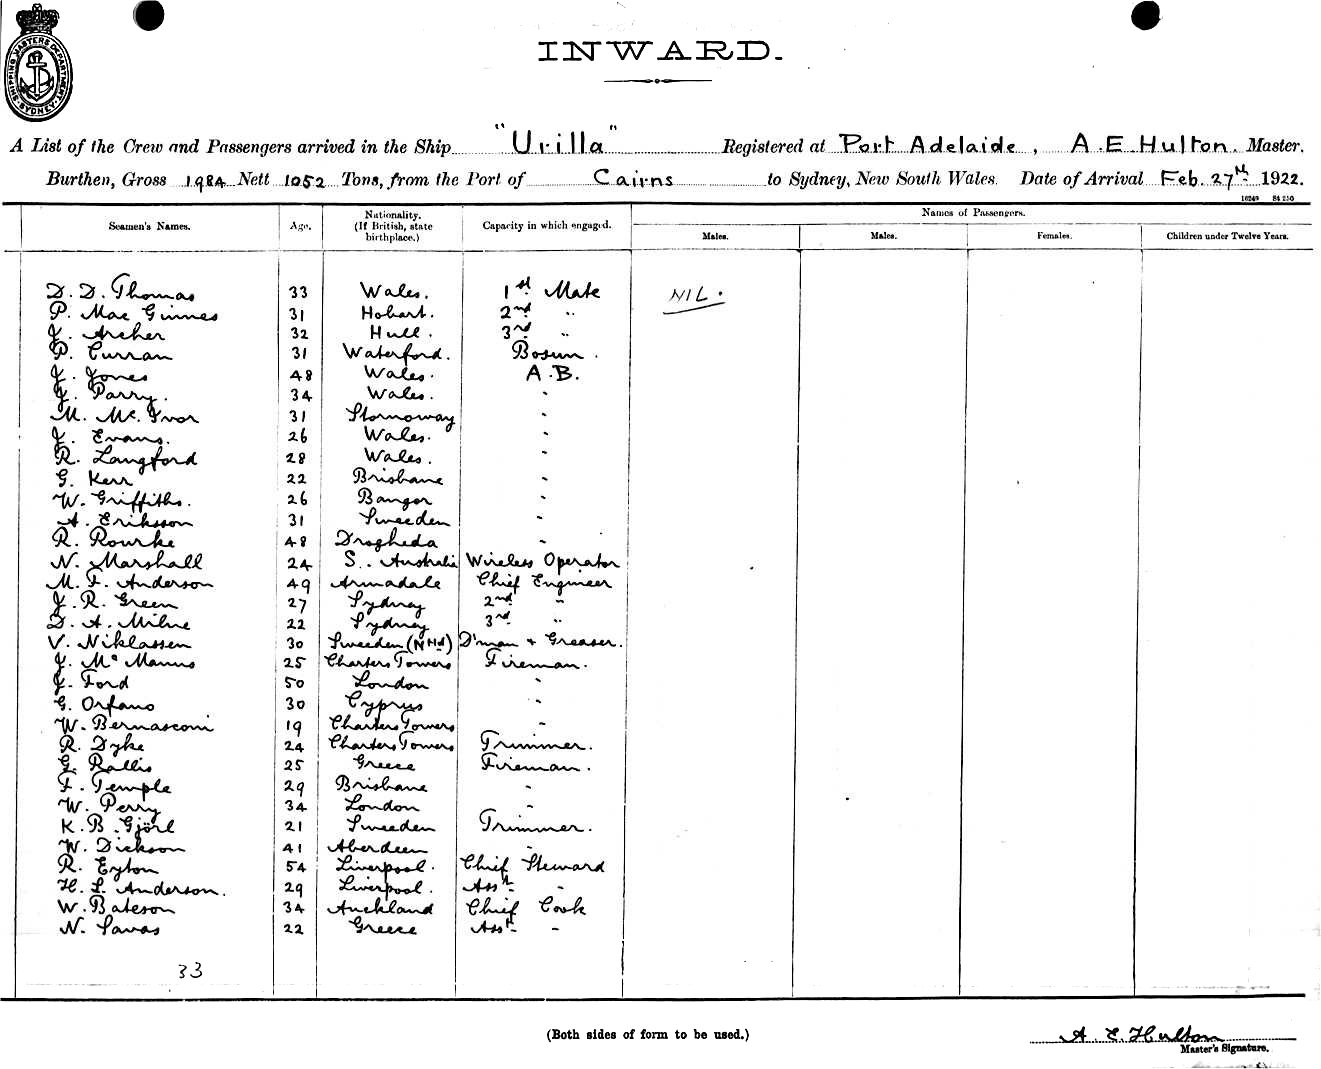 SHIPPING MASTERS DEPARTMENT SYDNEY
INWARD.
A List of the Crew and Passengers arrived in the Ship "Urilla" Registered at Port Adelaide, A. E. Hulton. Master,
Burthen, Gross 1984 Nett 1052 Tons, from the Port of Cairns to Sydney, New South Wales. Date of Arrival Feb. 27th 1922.
16249 84 250
Seamen's Names. Age. Nationality. (If British, state birthplace.) Capacity in which engaged. Names of Passengers.
Males. Males. Females. Children under Twelve Years.
D. D. Thomas 33 Wales. 1st Mate NIL.
P. Mac Ginnes 31 Hobart. 2nd "
J. Archer 32 Hull. 3rd "
P. Curran 31 Waterford. Bosun.
J. Jones 48 Wales. A.B.
J. Parry. 34 Wales. "
M. Mc. Ivor 31 Stornoway "
J. Evans. 26 Wales. "
R. Langford 28 Wales. "
G. Kerr 22 Brisbane "
W. Griffiths. 26 Bangor "
A. Eriksson 31 Sweeden "
R. Rourke 48 Drogheda "
N. Marshall 24 S. Australia Wireless Operator
M. F. Anderson 49 Armadale Chief Engineer
J. R. Green 27 Sydney 2nd "
D. A. Milne 22 Sydney 3rd "
V. Niklassen 30 Sweeden (NHd) D'man + Greaser.
J. Mc Manus 25 Charters Towers Fireman.
J. Ford 50 London "
G. Orfano 30 Cyprus "
W. Bernasconi 19 Charters Towers "
R. Dyke 24 Charters Towers Trimmer.
G. Rallis 25 Greece Fireman.
F. Temple 29 Brisbane "
W. Perry 34 London "
K. B. Gjörl 21 Sweeden Trimmer.
W. Dickson 41 Aberdeen "
R. Eyton 54 Liverpool. Chief Steward
H. L. Anderson. 29 Liverpool. Asst. "
W. Bateson 34 Auckland Chief Cook
N. Savas 22 Greece Asst. "
33
(Both sides of form to be used.)
A. E. Hulton
Master's Signature.